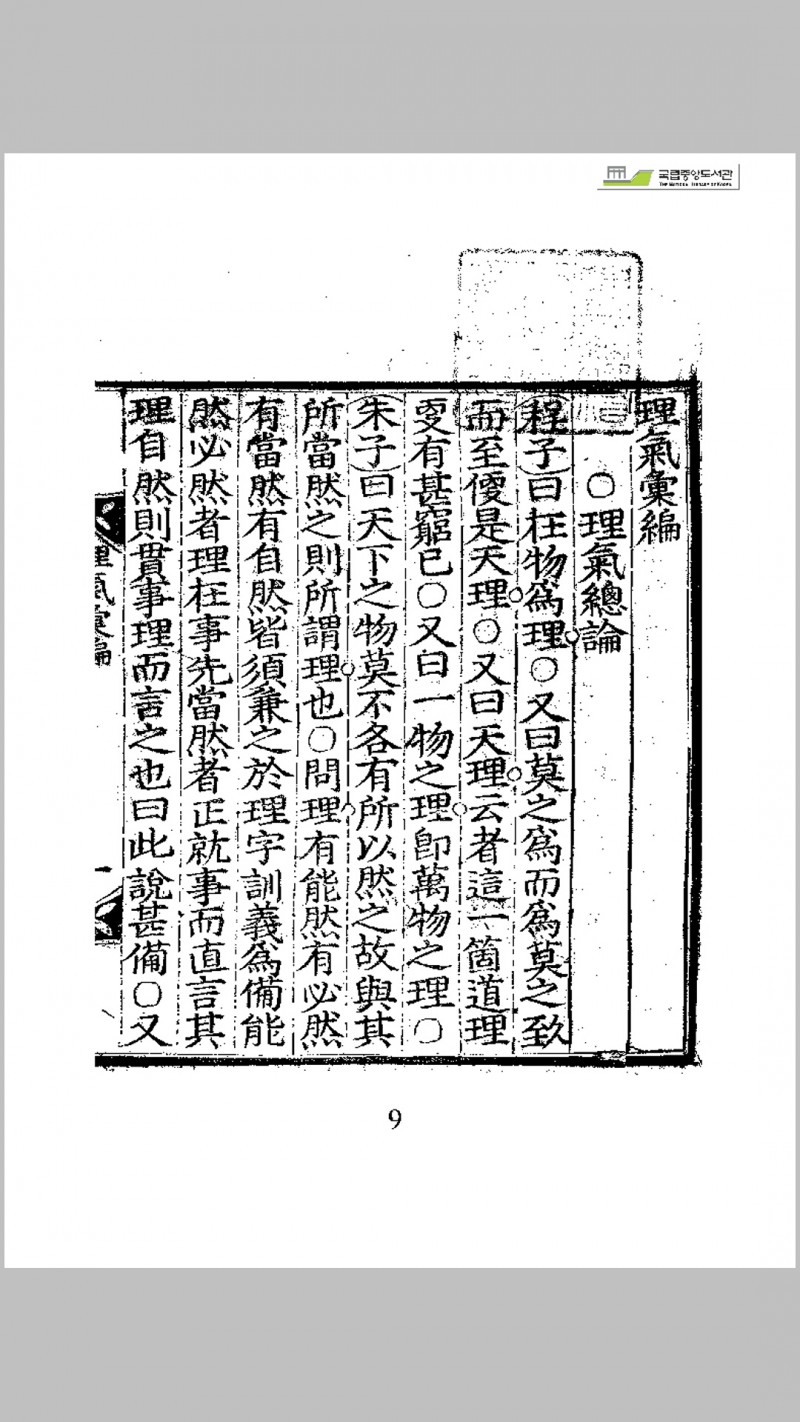 국립중앙도서관
THE NATIONAL LIBRARY OF KOREA
理氣彙編
○理氣總論
程子曰在物爲理○又曰莫之爲而爲莫之致
而至便是天理○又曰天理云者這一箇道理
更有甚窮已○又曰一物之理卽萬物之理○
朱子曰天下之物莫不各有所以然之故與其
所當然之則所謂理也○問理有能然有必然
有當然有自然皆須兼之於理字訓義爲備能
然必然者理在事先當然者正就事而直言其
理自然則貫事理而言之也曰此說甚備○又
理氣彙編
一
9